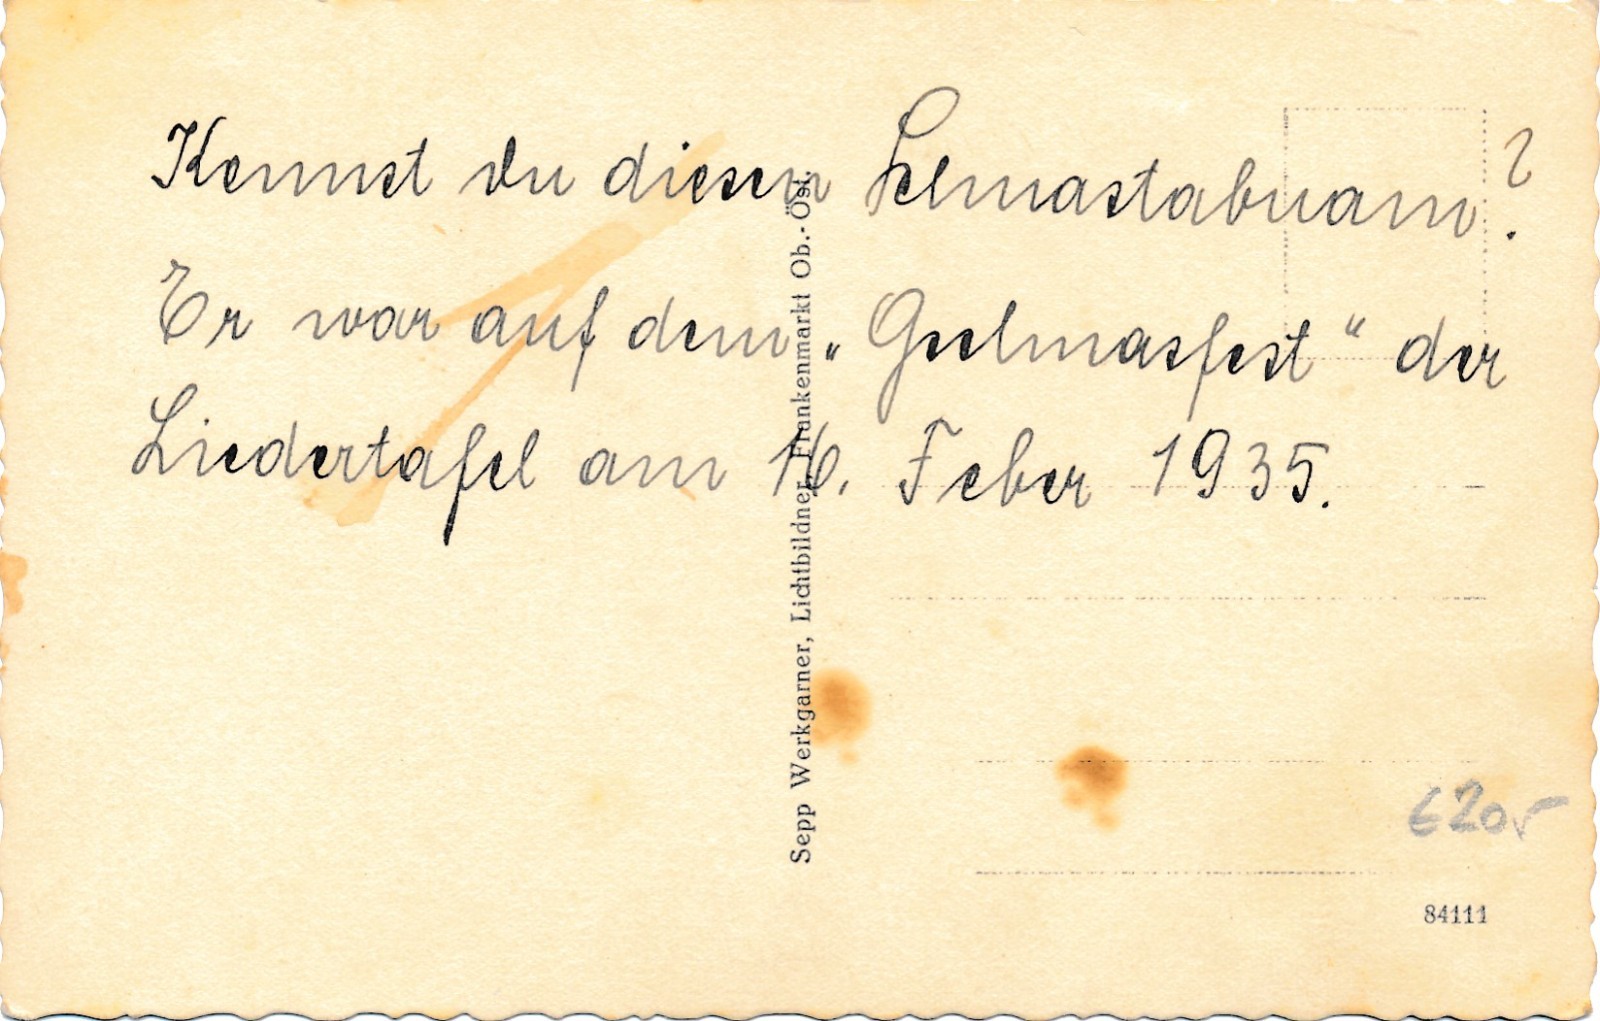 Kennst du diesen Selmastabuam?
Er war auf dem „Gselmasfest“ der
Liedertafel am 16. Feber 1935.
Sepp Werkgarner, Lichtbildner, Frankenmarkt Ob.-Öst.
€ 20,-
84111